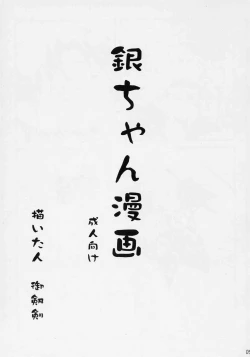 銀ちゃん漫画
成人向け
描いた人 御剣剣